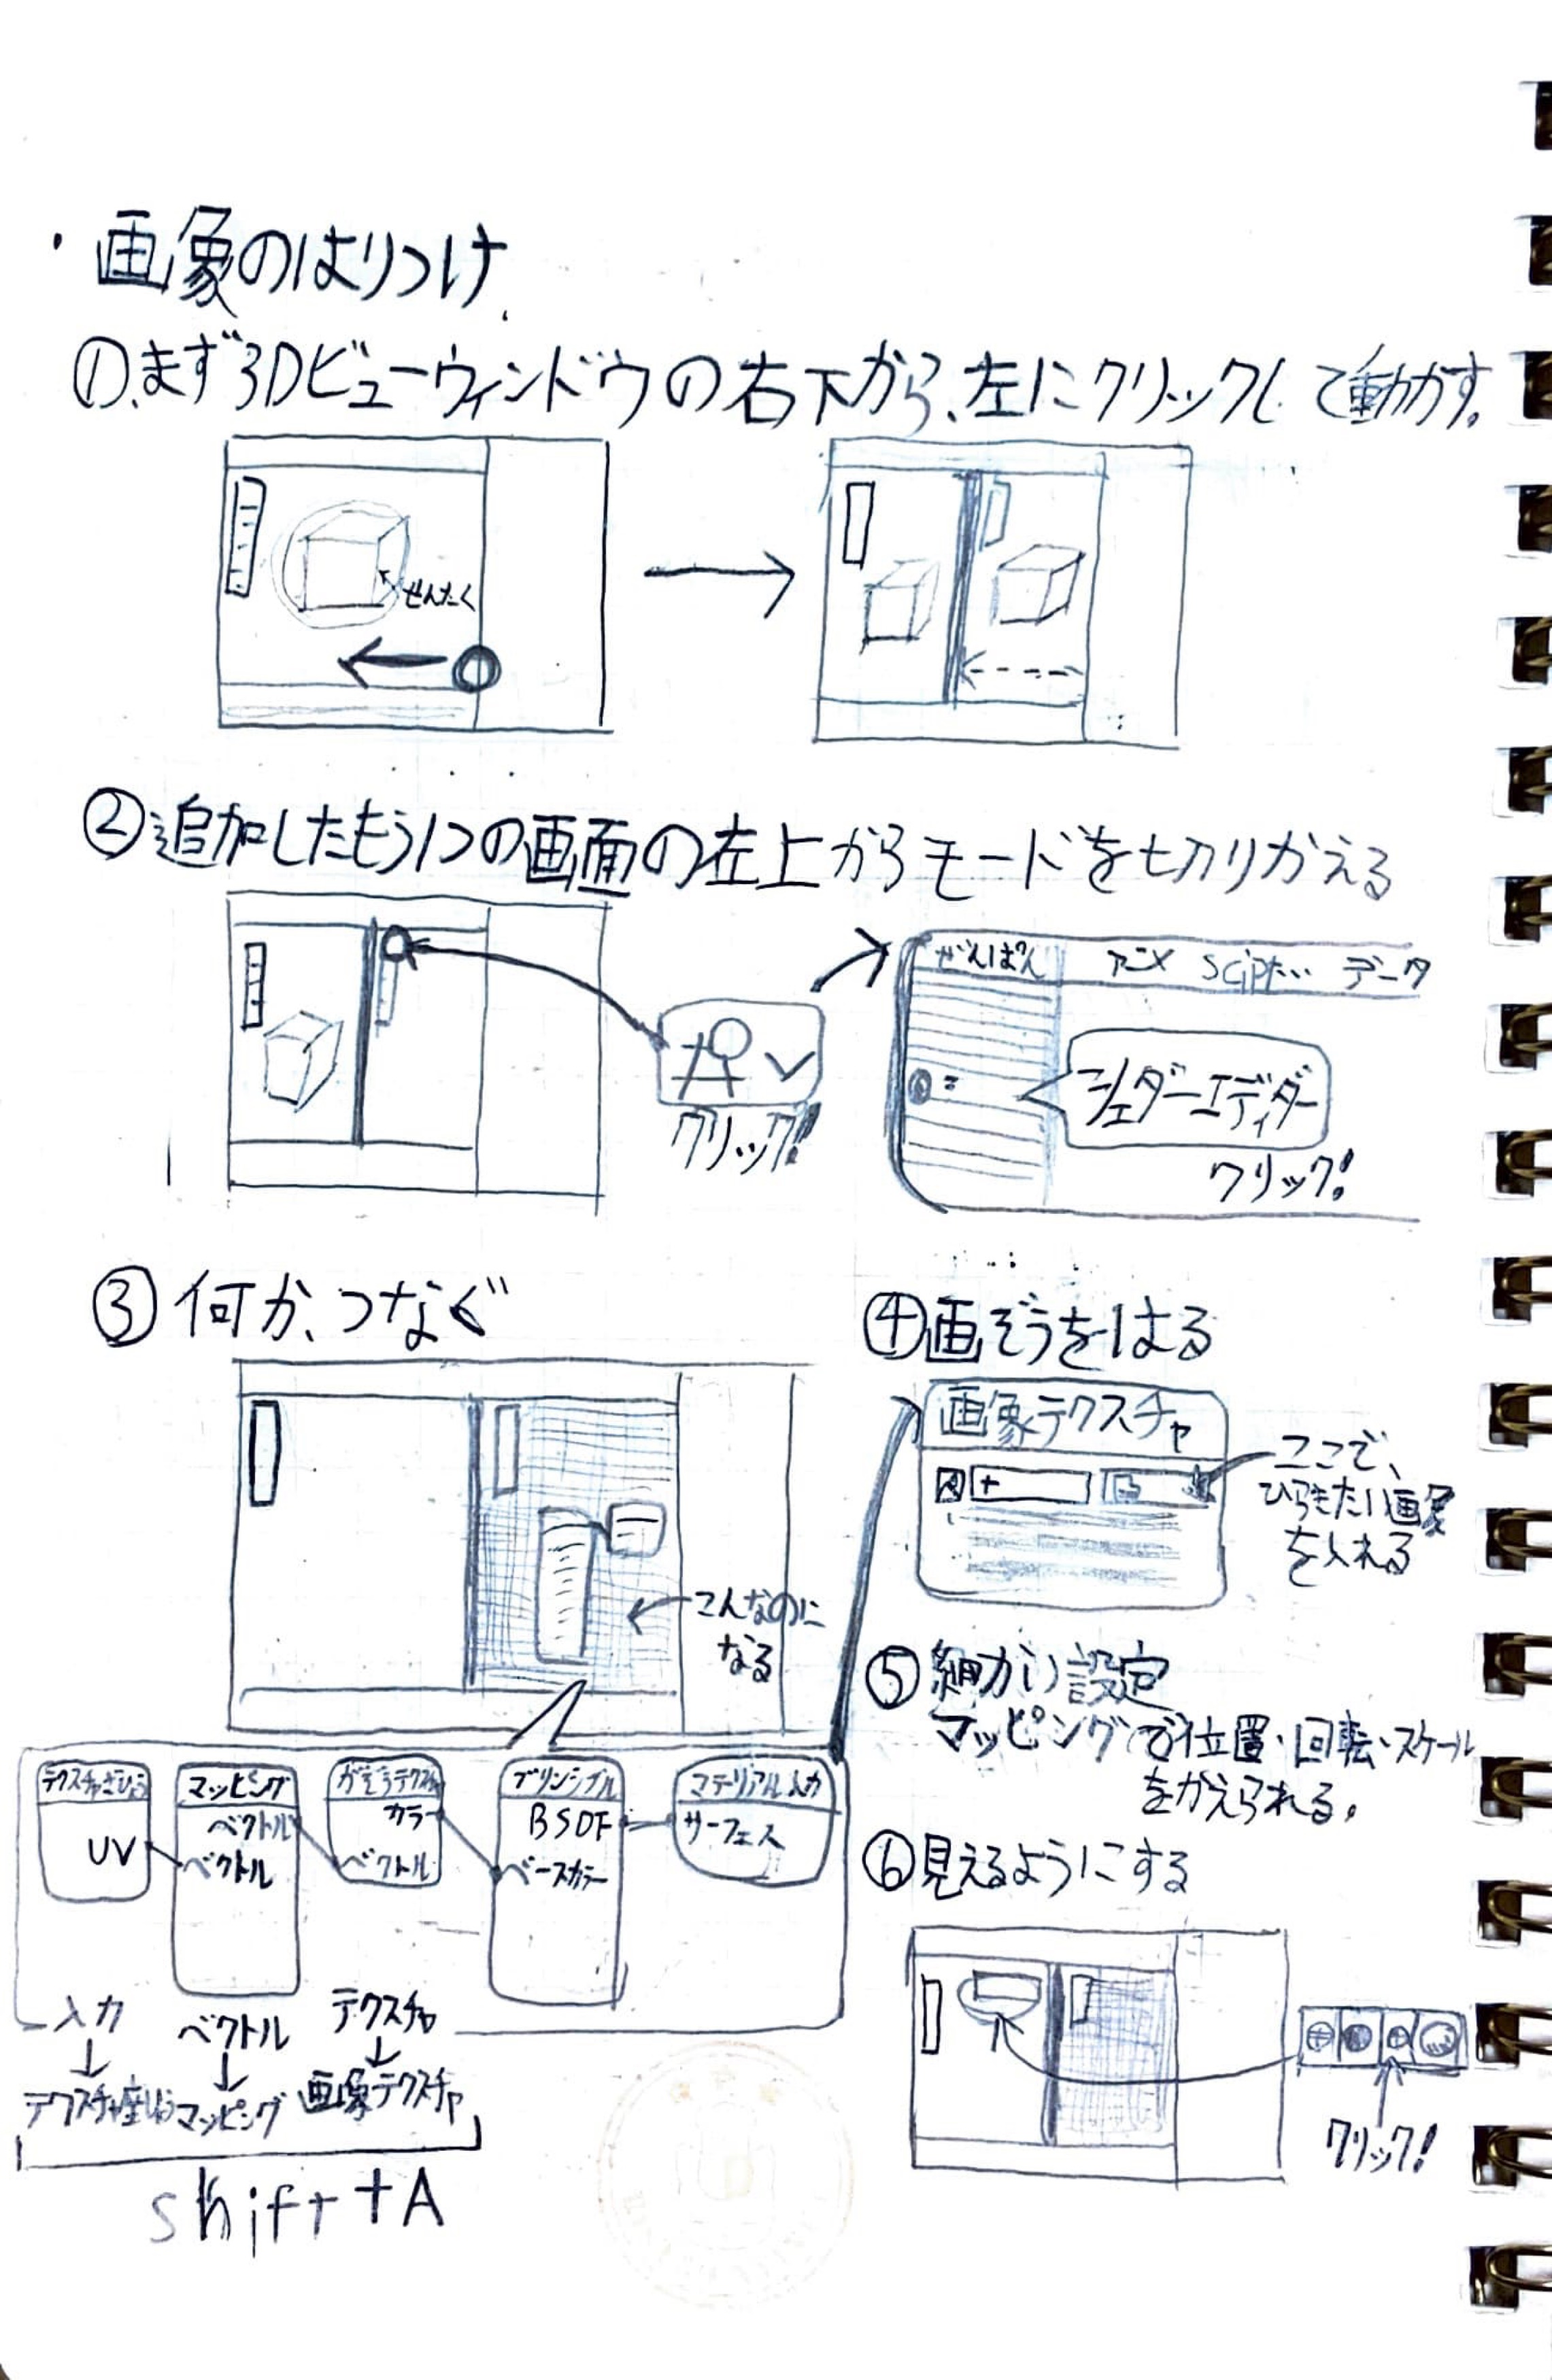 ・画像のはりつけ
①まず3Dビューウィンドウの右下から、左にクリックして動かす。
せんたく
②追加したもう1つの画面の左上からモードを切りかえる
ぜんぱん アニメ scipt... データ
シェダーエディダー
クリック!
クリック!
③何か、つなぐ
こんなのに
なる
テクスチャざひょう
UV
マッピング
ベクトル
ベクトル
がぞうテクスチャ
カラー
ベクトル
プリンシプル
BSDF
ベースカラー
マテリアル入力
サーフェス
入力
↓
テクスチャ座ひょう
ベクトル
↓
マッピング
テクスチャ
↓
画像テクスチャ
shift+A
④画ぞうをはる
画像テクスチャ
+
ここで、
ひらきたい画像
を入れる
⑤細かい設定
マッピングで位置・回転・スケール
をかえられる。
⑥見えるようにする
クリック!